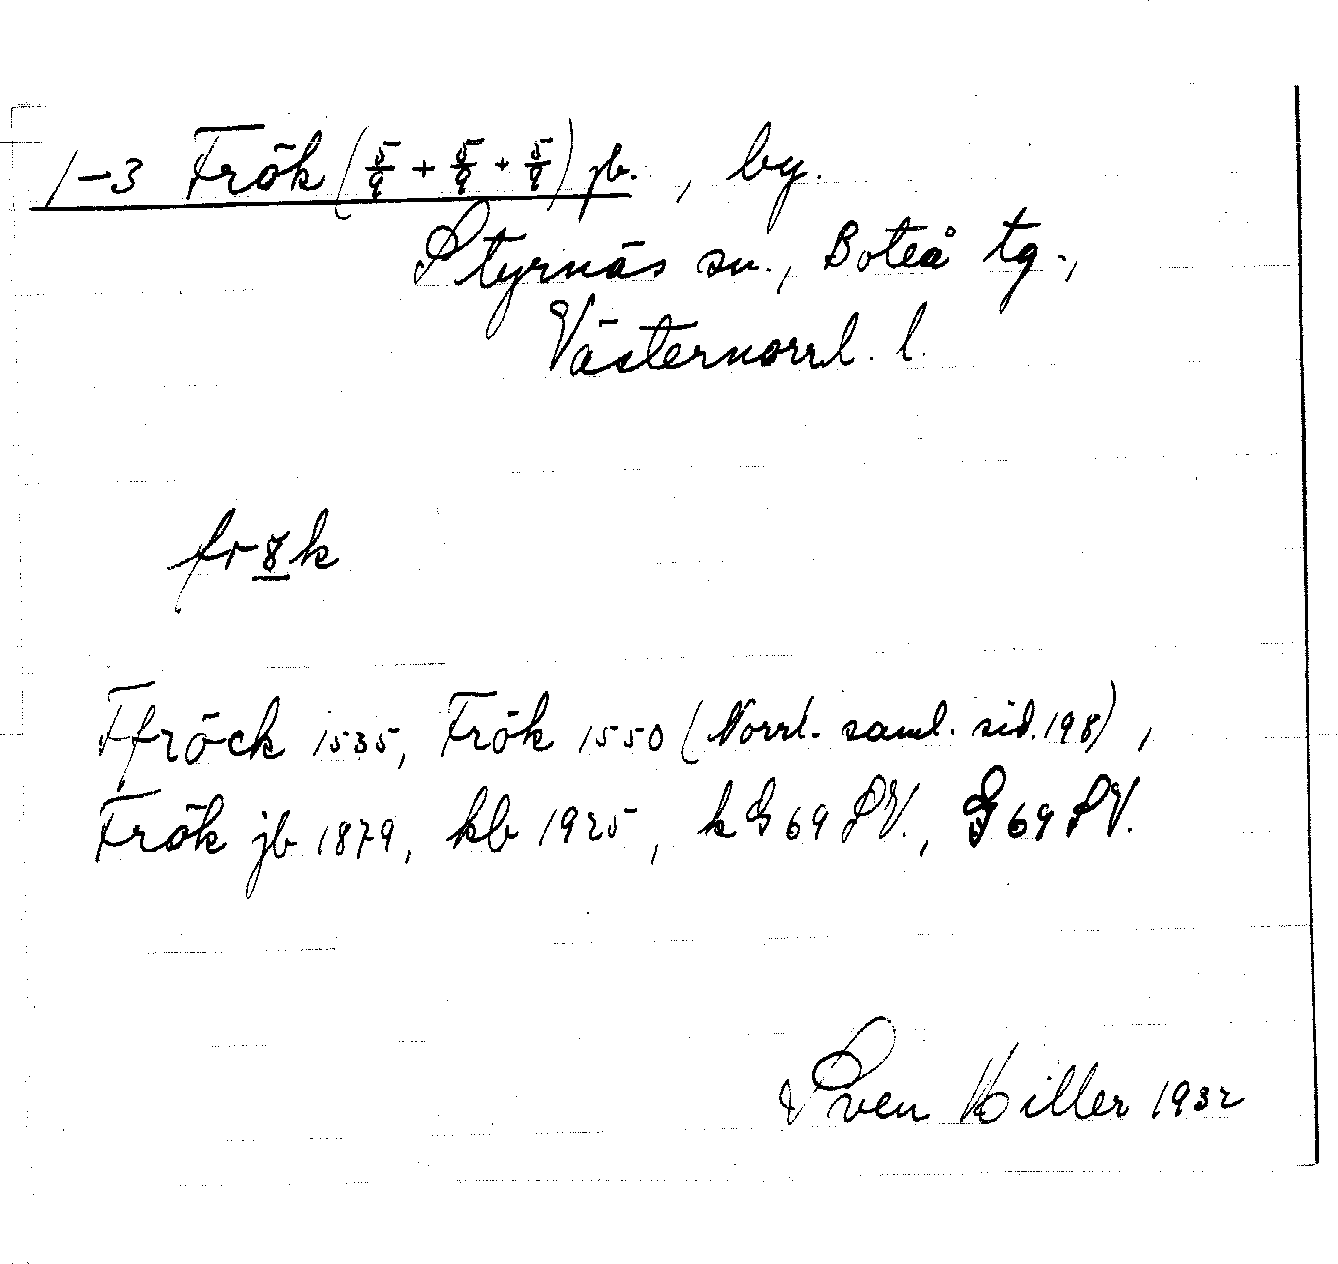 1-3 Frök (5/9 + 5/9 + 5/9) jb., by.
Styrnäs sn., Boteå tg.,
Västernorrl. l.
frö̱k
Ffröck 1535, Frök 1550 (Norrl. saml. sid. 198),
Frök jb 1879, kb 1925, k G 69 SV., G 69 SV.
Sven Hiller 1932